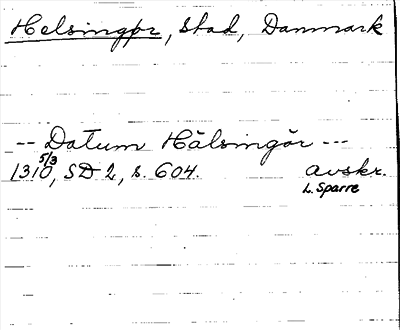 Helsingør, stad, Danmark
-- Datum Hälsingör ---
1310 5/3, SD 2, s. 604. avskr.
L. Sparre